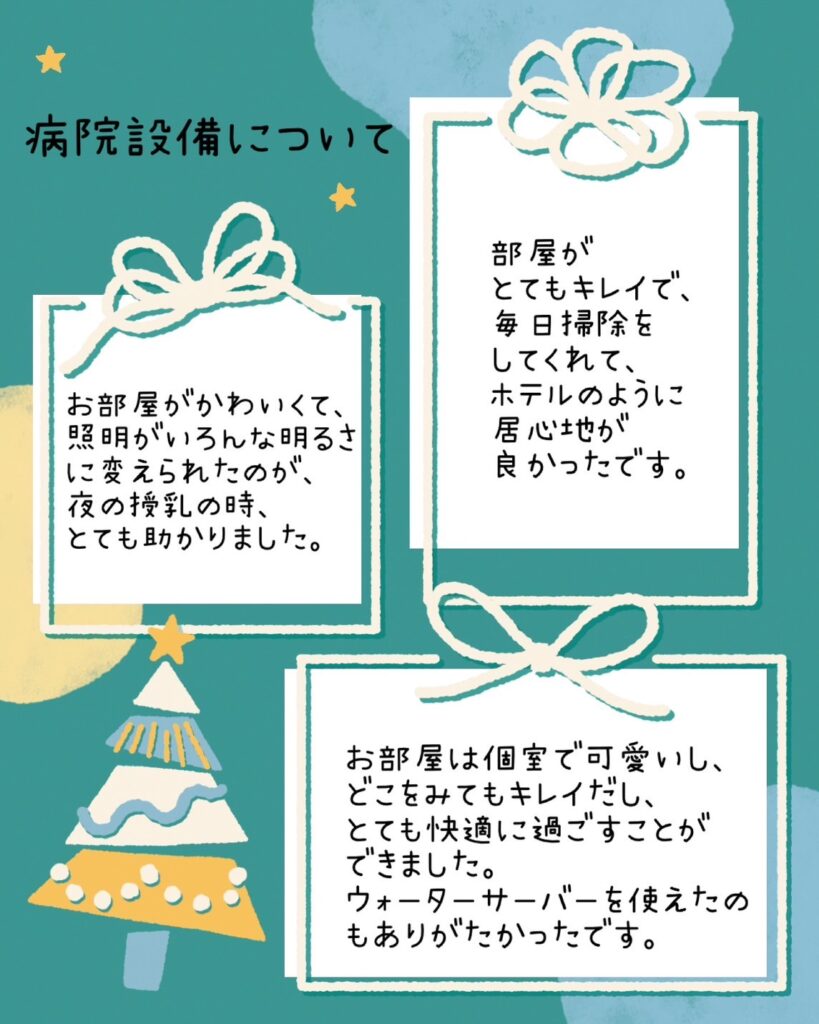 病院設備について
お部屋がかわいくて、
照明がいろんな明るさ
に変えられたのが、
夜の授乳の時、
とても助かりました。
部屋が
とてもキレイで、
毎日掃除を
してくれて、
ホテルのように
居心地が
良かったです。
お部屋は個室で可愛いし、
どこをみてもキレイだし、
とても快適に過ごすことが
できました。
ウォーターサーバーを使えたの
もありがたかったです。